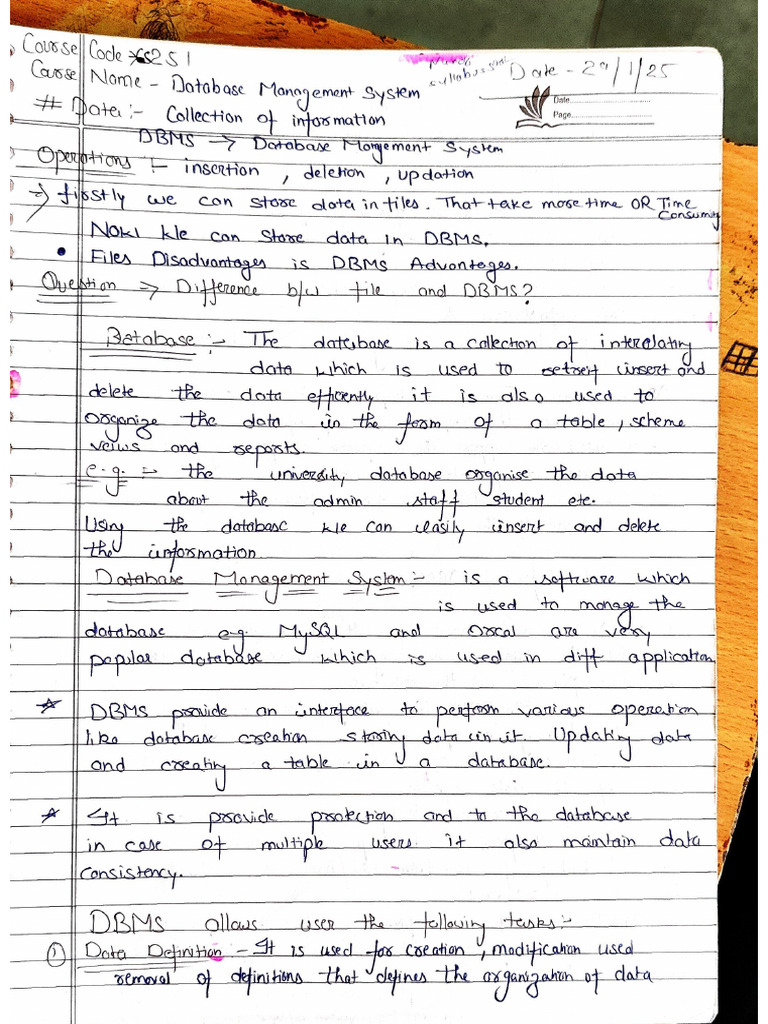 Course Code 251
Course Name - Database Management System
Date - 29/1/25
Date
Page
# Data :- Collection of information
DBMS → Database Mangement System
Operations :- insertion, deletion, updation
⇒ firstly we can store data in files. That take more time OR Time Consuming
Now we can store data in DBMS.
• Files Disadvantages is DBMS Advantages.
Question ⇒ Difference b/w file and DBMS?
Database :- The database is a collection of interelating
data which is used to insert and
delete the data efficiently it is also used to
organize the data in the form of a table, scheme
veiws and reports.
e.g. :- the university database organise the data
about the admin staff student etc.
Using the database we can easily insert and delete
the information.
Database Management System :- is a software which
is used to manage the
database e.g. MySQL and Orcal are very
popular database which is used in diff application
* DBMS provide an interface to perform various operation
like database creation storing data in it. Updating data
and creating a table in a database.
* It is provide protection and to the database
in case of multiple users it also maintain data
consistency.
DBMS allows user the following tasks :-
① Data Definition - It is used for creation, modification used
removal of definitions that defines the organization of data